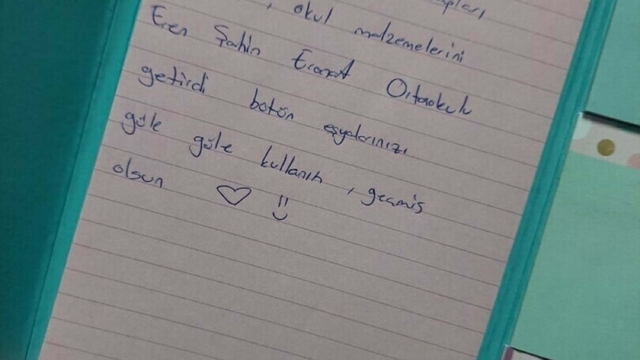 , okul malzemelerini
Eren Şahin Eronat Ortaokulu
getirdi bütün eşyalarınızı
güle güle kullanın , geçmiş
olsun ♡ ü